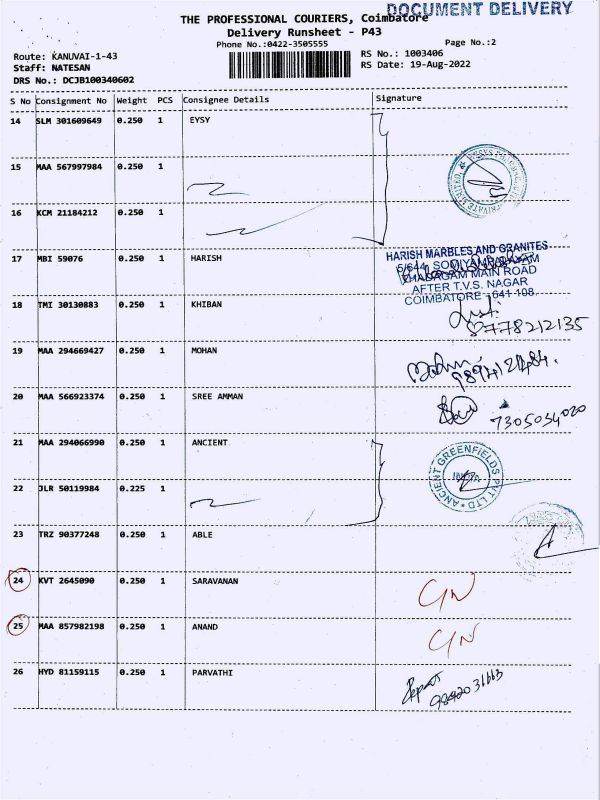 DOCUMENT DELIVERY
THE PROFESSIONAL COURIERS, Coimbatore
Delivery Runsheet - P43
Phone No.:0422-3505555
Page No.:2
Route: KANUVAI-1-43
RS No.: 1003406
Staff: NATESAN
RS Date: 19-Aug-2022
DRS No.: DCJB100340602
S No Consignment No Weight PCS Consignee Details Signature
14 SLM 301609649 0.250 1 EYSY
15 MAA 567997984 0.250 1
16 KCM 21184212 0.250 1
17 MBI 59076 0.250 1 HARISH
HARISH MARBLES AND GRANITES
5/644, SOMIYAMPALAYAM
KHANAGAM MAIN ROAD
AFTER T.V.S. NAGAR
COIMBATORE - 641 108.
18 TMI 30130883 0.250 1 KHIBAN
8778212135
19 MAA 294669427 0.250 1 MOHAN
20 MAA 566923374 0.250 1 SREE AMMAN
7305034020
21 MAA 294066990 0.250 1 ANCIENT
ANCIENT GREENFIELDS PVT LTD
22 JLR 50119984 0.225 1
23 TRZ 90377248 0.250 1 ABLE
24 KVT 2645090 0.250 1 SARAVANAN
25 MAA 857982198 0.250 1 ANAND
26 HYD 81159115 0.250 1 PARVATHI